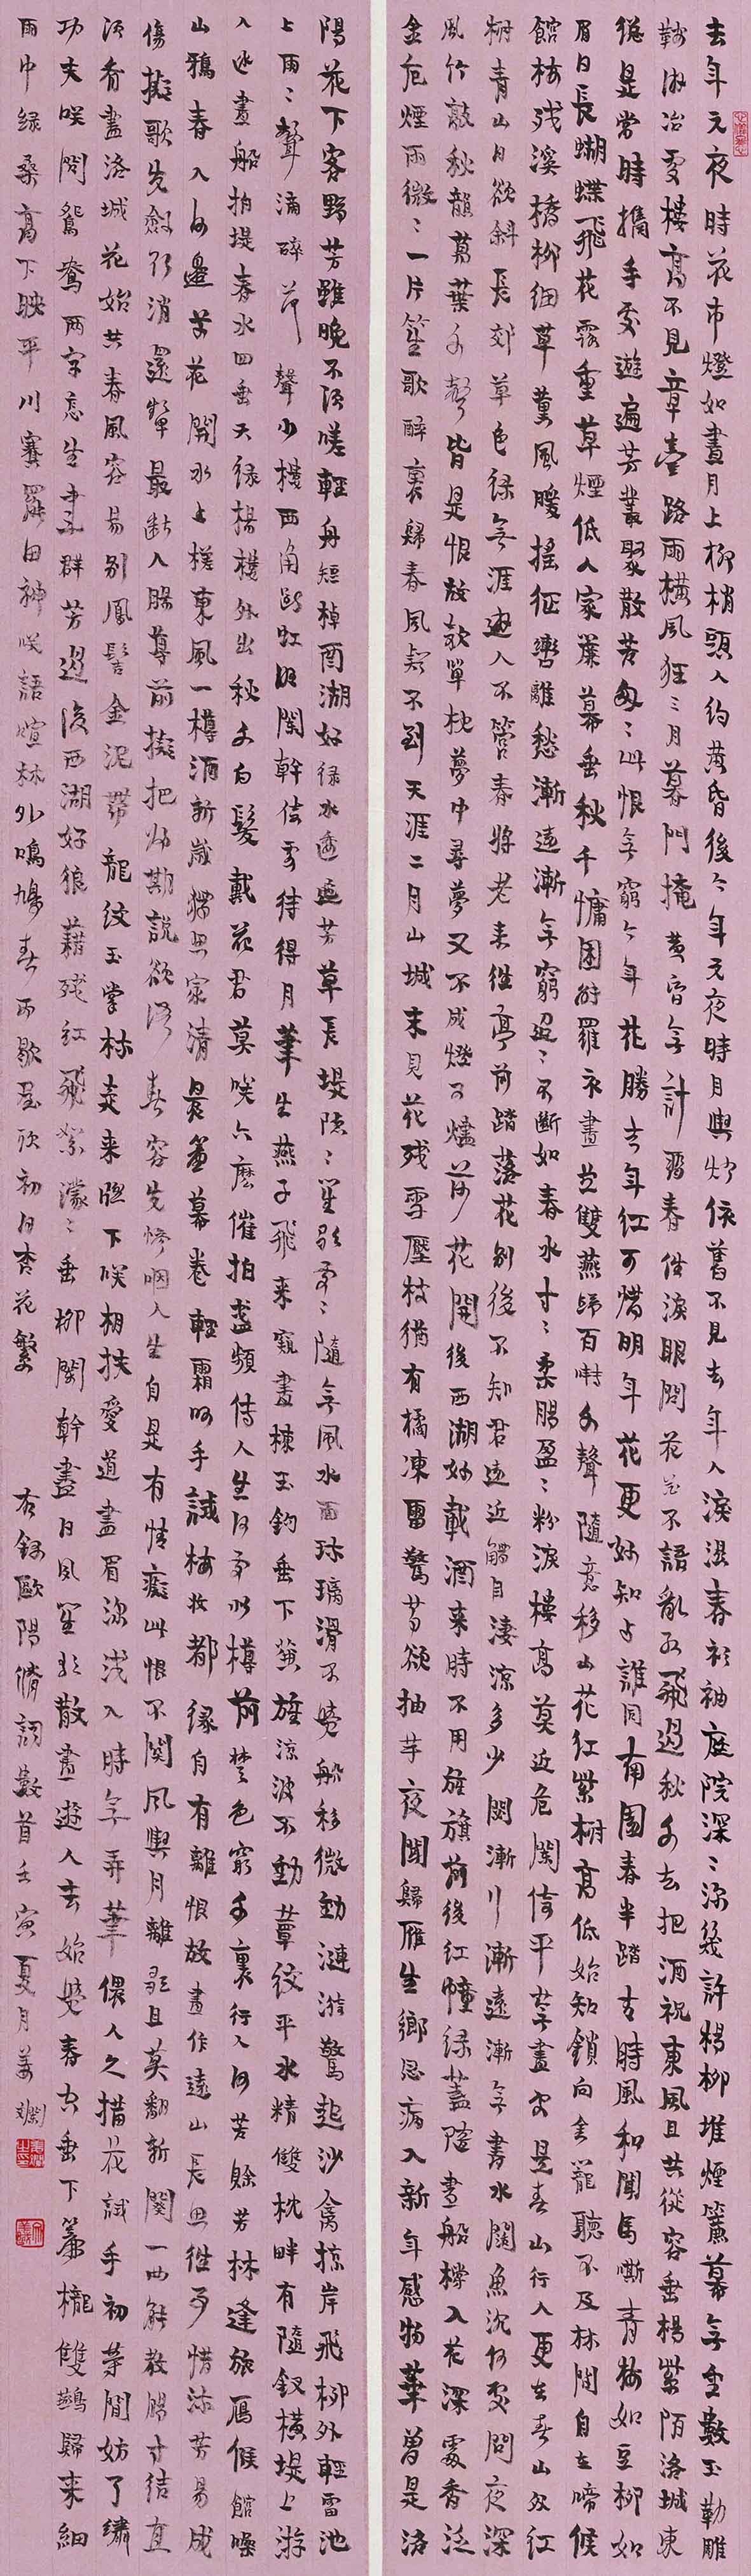 去年元夜時花市燈如晝月上柳梢頭人約黃昏後今年元夜時月與燈依舊不見去年人淚溼春衫袖庭院深〻深幾許楊柳堆煙簾幕無重數玉勒雕
鞍游冶處樓高不見章臺路雨橫風狂三月暮門掩黃昏無計留春住淚眼問花花不語亂紅飛過秋千去把酒祝東風且共從容垂楊紫陌洛城東
總是當時攜手處遊遍芳叢聚散苦匆〻此恨無窮今年花勝去年紅可惜明年花更好知与誰同南園春半踏青時風和聞馬嘶青梅如豆柳如
眉日長蝴蝶飛花露重草煙低人家簾幕垂秋千慵困解羅衣畫堂雙燕歸百囀千聲隨意移山花紅紫樹高低始知鎖向金籠聽不及林間自在啼候
館梅殘溪橋柳細草薰風暖搖征轡離愁漸遠漸無窮迢〻不斷如春水寸〻柔腸盈〻粉淚樓高莫近危闌倚平蕪盡處是春山行人更在春山外紅
樹青山日欲斜長郊草色綠無涯遊人不管春將老來往亭前踏落花別後不知君遠近觸目淒涼多少悶漸行漸遠漸無書水闊魚沉何處問夜深
風竹敲秋韻萬葉千聲皆是恨故欹單枕夢中尋夢又不成燈又燼荷花開後西湖好載酒來時不用旌旗前後紅幢綠蓋隨畫船撐入花深處香泛
金卮煙雨微〻一片笙歌醉裏歸春風疑不到天涯二月山城未見花殘雪壓枝猶有橘凍雷驚筍欲抽芽夜聞歸雁生鄉思病入新年感物華曾是洛
陽花下客野芳雖晚不須嗟輕舟短棹西湖好綠水逶迤芳草長堤隱〻笙歌處〻隨無風水面琉璃滑不覺船移微動漣漪驚起沙禽掠岸飛柳外輕雷池
上雨〻聲滴碎荷聲小樓西角斷虹明闌幹倚處待得月華生燕子飛來窺畫棟玉鉤垂下簾旌涼波不動簟紋平水精雙枕畔有墮釵橫堤上游
人逐畫船拍堤春水四垂天綠楊樓外出秋千白髮戴花君莫笑六麼催拍盞頻傳人生何處似樽前楚色窮千裏行人何苦賒芳林逢旅雁候館噪
山鴉春入河邊草花開水上槎東風一樽酒新歲獨思家清晨簾幕卷輕霜呵手試梅妝都緣自有離恨故畫作遠山長思往事惜流芳易成
傷擬歌先斂欲笑還顰最斷人腸尊前擬把歸期說欲語春容先慘咽人生自是有情癡此恨不關風與月離歌且莫翻新闋一曲能教腸寸結直
須看盡洛城花始共春風容易別鳳髻金泥帶龍紋玉掌梳走來窗下笑相扶愛道畫眉深淺入時無弄筆偎人久描花試手初等閒妨了繡
功夫笑問鴛鴦兩字怎生書群芳過後西湖好狼藉殘紅飛絮濛〻垂柳闌幹盡日風笙歌散盡遊人去始覺春空垂下簾櫳雙燕歸來細
雨中綠桑高下映平川賽罷田神笑語喧林外鳴鳩春雨歇屋頭初日杏花繁 右錄歐陽脩詞數首壬寅夏月姜斕